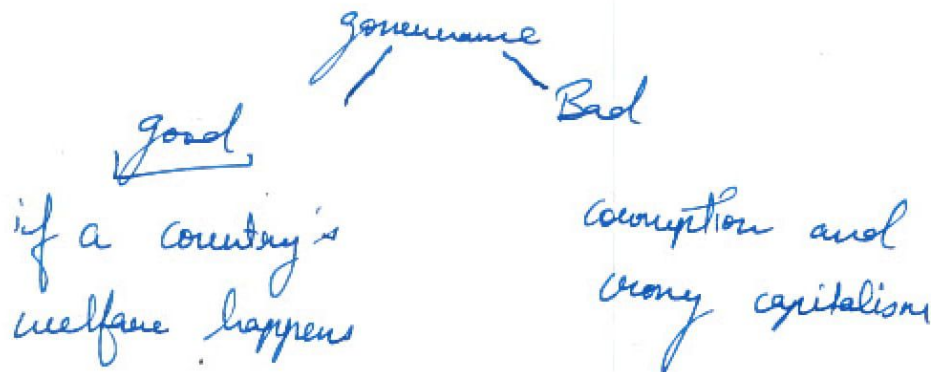 governance
good
Bad
if a country's
welfare happens
corruption and
crony capitalism